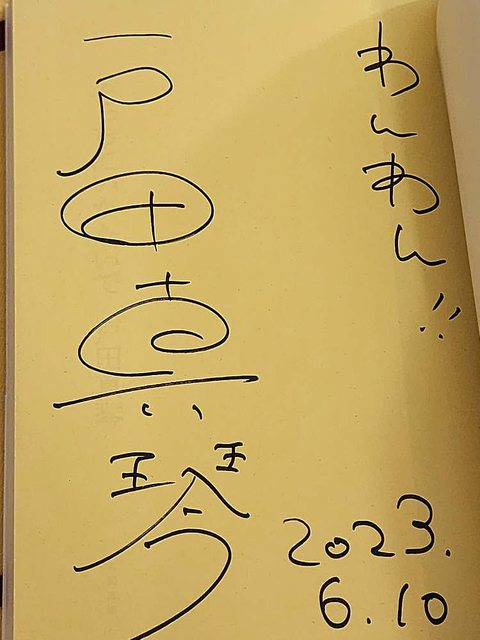 わんわん!!
戸田真琴
2023.
6.10